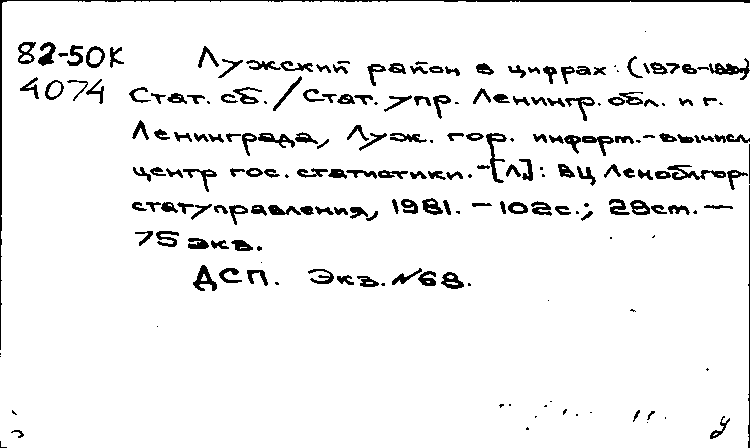 82-50К Лужский район в цифрах: (1976-1980)
4074 Стат. сб. / Стат. упр. Ленингр. обл. и г.
Ленинграда, Луж. гор. информ.-вычисл.
центр гос. статистики. -[Л.]: ВЦ Леноблгор-
статуправления, 1981. - 102с.; 29см. —
75 экз.
ДСП. Экз. №68.
у